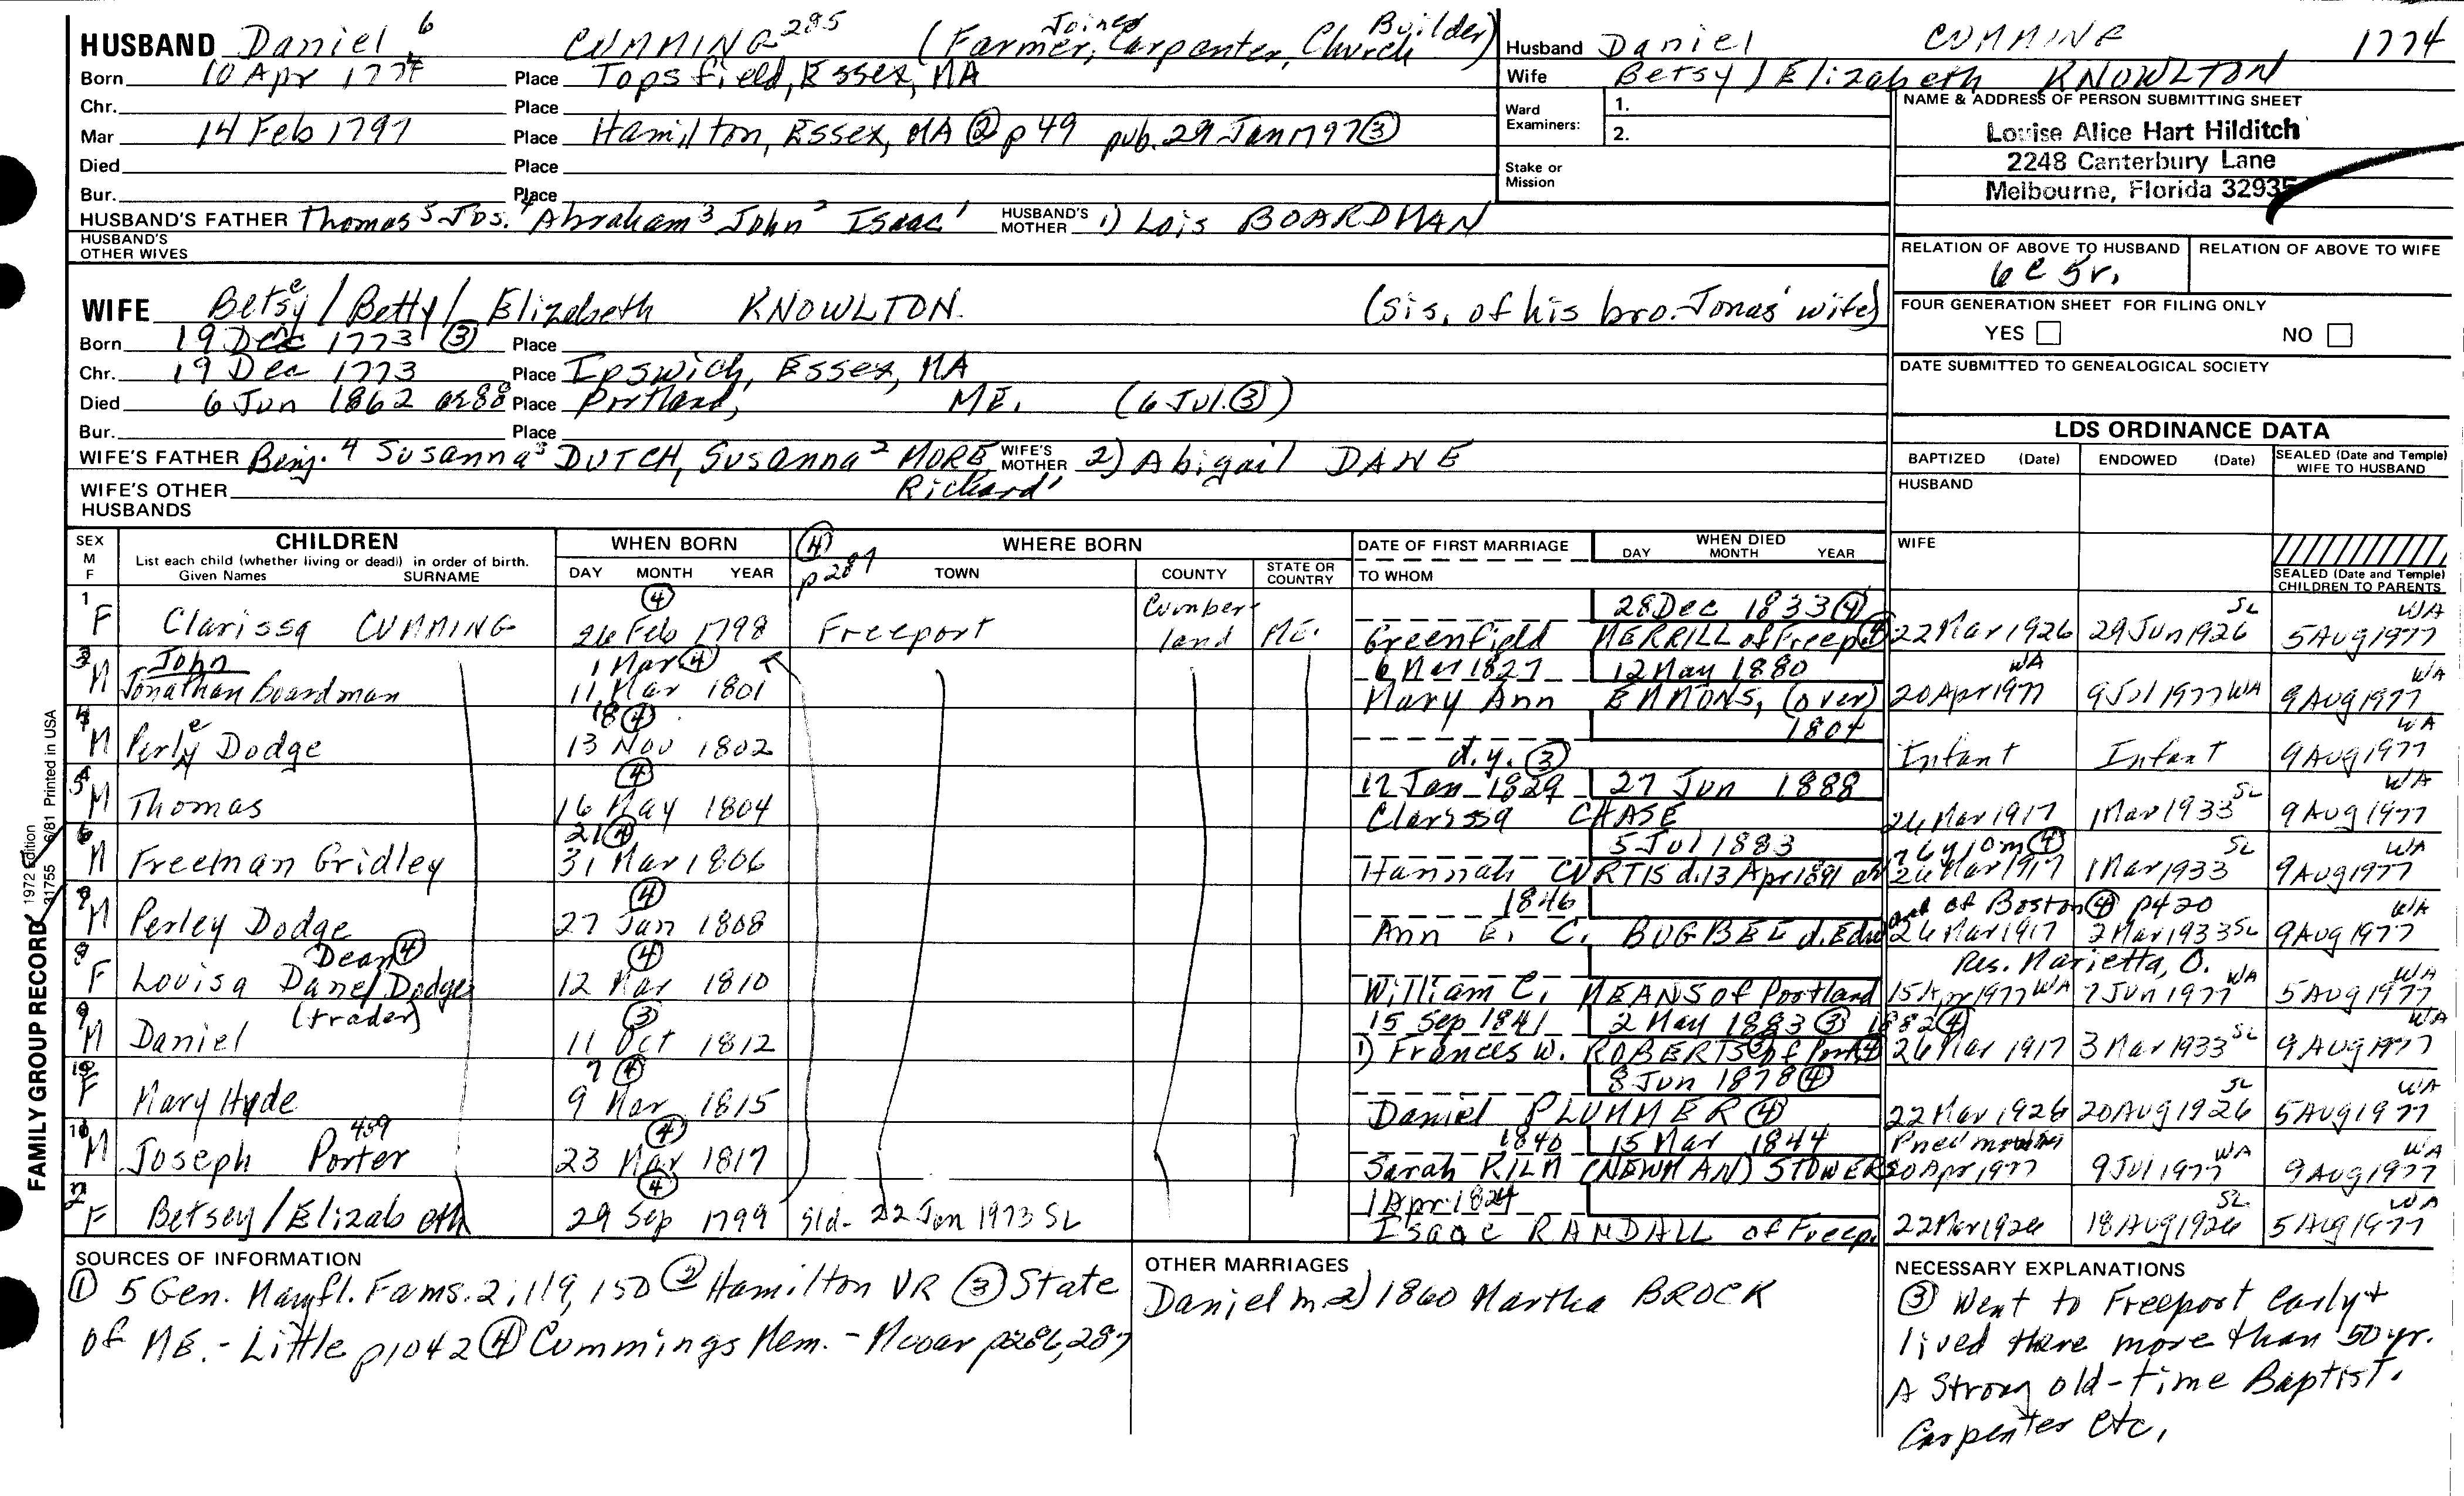 HUSBAND Daniel 6 CUMMING 285 (Farmer, Joiner, Carpenter, Church Builder)
Born 10 Apr 1774 Place Topsfield, Essex, MA
Chr. Place
Mar 14 Feb 1797 Place Hamilton, Essex, MA ② p 49 pub. 29 Jan 1797 ③
Died Place
Bur. Place
HUSBAND'S FATHER Thomas 5 Jos. 4 Abraham 3 John 2 Isaac 1 HUSBAND'S MOTHER 1) Lois BOARDMAN
HUSBAND'S OTHER WIVES
Husband Daniel CUMMING 1774
Wife Betsy / Elizabeth KNOWLTON
Ward Examiners: 1.
2.
Stake or Mission
NAME & ADDRESS OF PERSON SUBMITTING SHEET
Louise Alice Hart Hilditch
2248 Canterbury Lane
Melbourne, Florida 32935
RELATION OF ABOVE TO HUSBAND RELATION OF ABOVE TO WIFE
6C 5r.
FOUR GENERATION SHEET FOR FILING ONLY
YES NO
DATE SUBMITTED TO GENEALOGICAL SOCIETY
WIFE Betsey / Betty / Elizabeth KNOWLTON (sis. of his bro. Jonas' wife)
Born 19 Dec 1773 ③ Place
Chr. 19 Dec 1773 Place Ipswich, Essex, MA
Died 6 Jun 1862 ae 88 Place Portland, ME. (6 Jul. ③)
Bur. Place
WIFE'S FATHER Benj. 4 Susanna 3 DUTCH, Susanna 2 MORE, Richard 1 WIFE'S MOTHER 2) Abigail DANE
WIFE'S OTHER HUSBANDS
LDS ORDINANCE DATA
BAPTIZED (Date) ENDOWED (Date) SEALED (Date and Temple) WIFE TO HUSBAND
HUSBAND
WIFE
SEALED (Date and Temple) CHILDREN TO PARENTS
SEX M F CHILDREN WHEN BORN ④ p 287 WHERE BORN DATE OF FIRST MARRIAGE WHEN DIED
List each child (whether living or dead) in order of birth.
Given Names SURNAME DAY MONTH YEAR TOWN COUNTY STATE OR COUNTRY TO WHOM DAY MONTH YEAR
1 F Clarissa CUMMING ④ 26 Feb 1798 Freeport Cumberland ME. 28 Dec 1833 ④
Greenfield MERRILL of Freep. ④ 22 Mar 1926 29 Jun 1926 SL 5 Aug 1977 WA
3 M John Jonathan Boardman 1 Mar ④ 11 Mar 1801 6 Mar 1827 12 May 1880
Mary Ann EMMONS, (over) 20 Apr 1977 WA 9 Jul 1977 WA 9 Aug 1977 WA
4 M Perley Dodge 18 ④ 13 Nov 1802 1804
d.y. ③ Infant Infant 9 Aug 1977 WA
5 M Thomas ④ 16 May 1804 17 Jan 1829 27 Jun 1888
Clarissa CHASE 26 Mar 1917 1 Mar 1933 SL 9 Aug 1977 WA
6 M Freeman Gridley 21 ④ 31 Mar 1806 5 Jul 1883
Hannah CURTIS d. 13 Apr 1891 ae 76y 10m ④ 26 Mar 1917 1 Mar 1933 SL 9 Aug 1977 WA
M Perley Dodge ④ 27 Jan 1808 1846
Ann E. C. BUGBEE d. Edw. of Boston ④ p420 26 Mar 1917 2 Mar 1933 SL 9 Aug 1977 WA
8 F Louisa Dane/Dodge Dean ④ ④ 12 Mar 1810 Res. Marietta, O.
William C. MEANS of Portland 15 Apr 1977 WA 7 Jun 1977 WA 5 Aug 1977 WA
9 M Daniel (trader) ③ 11 Oct 1812 15 Sep 1841 2 May 1883 ③ 1882 ④
1) Frances W. ROBERTS of Port. ④ 26 Mar 1917 3 Mar 1933 SL 9 Aug 1977 WA
10 F Mary Hyde 7 ④ 9 Mar 1815 8 Jun 1878 ④
Daniel PLUMMER ④ 22 Mar 1926 20 Aug 1926 SL 5 Aug 1977 WA
11 M Joseph Porter 459 ④ 23 Mar 1817 1840 15 Mar 1844 Pneumonia
Sarah (NEWMAN) STOWERS 20 Apr 1977 9 Jul 1977 WA 9 Aug 1977 WA
2 F Betsey / Elizabeth ④ 29 Sep 1799 Sld- 22 Jan 1973 SL 1 Apr 1824
Isaac RANDALL of Freep. 22 Mar 1926 18 Aug 1926 SL 5 Aug 1977 WA
SOURCES OF INFORMATION
① 5 Gen. Mayfl. Fams. 2; 119, 150 ② Hamilton VR ③ State
of ME. - Little p1042 ④ Cummings Mem. - Mooar p286, 287
OTHER MARRIAGES
Daniel m 2) 1860 Martha BROCK
NECESSARY EXPLANATIONS
③ Went to Freeport early +
lived there more than 50 yr.
A strong old-time Baptist.
Carpenter etc.
FAMILY GROUP RECORD 1972 Edition
31755 6/81 Printed in USA